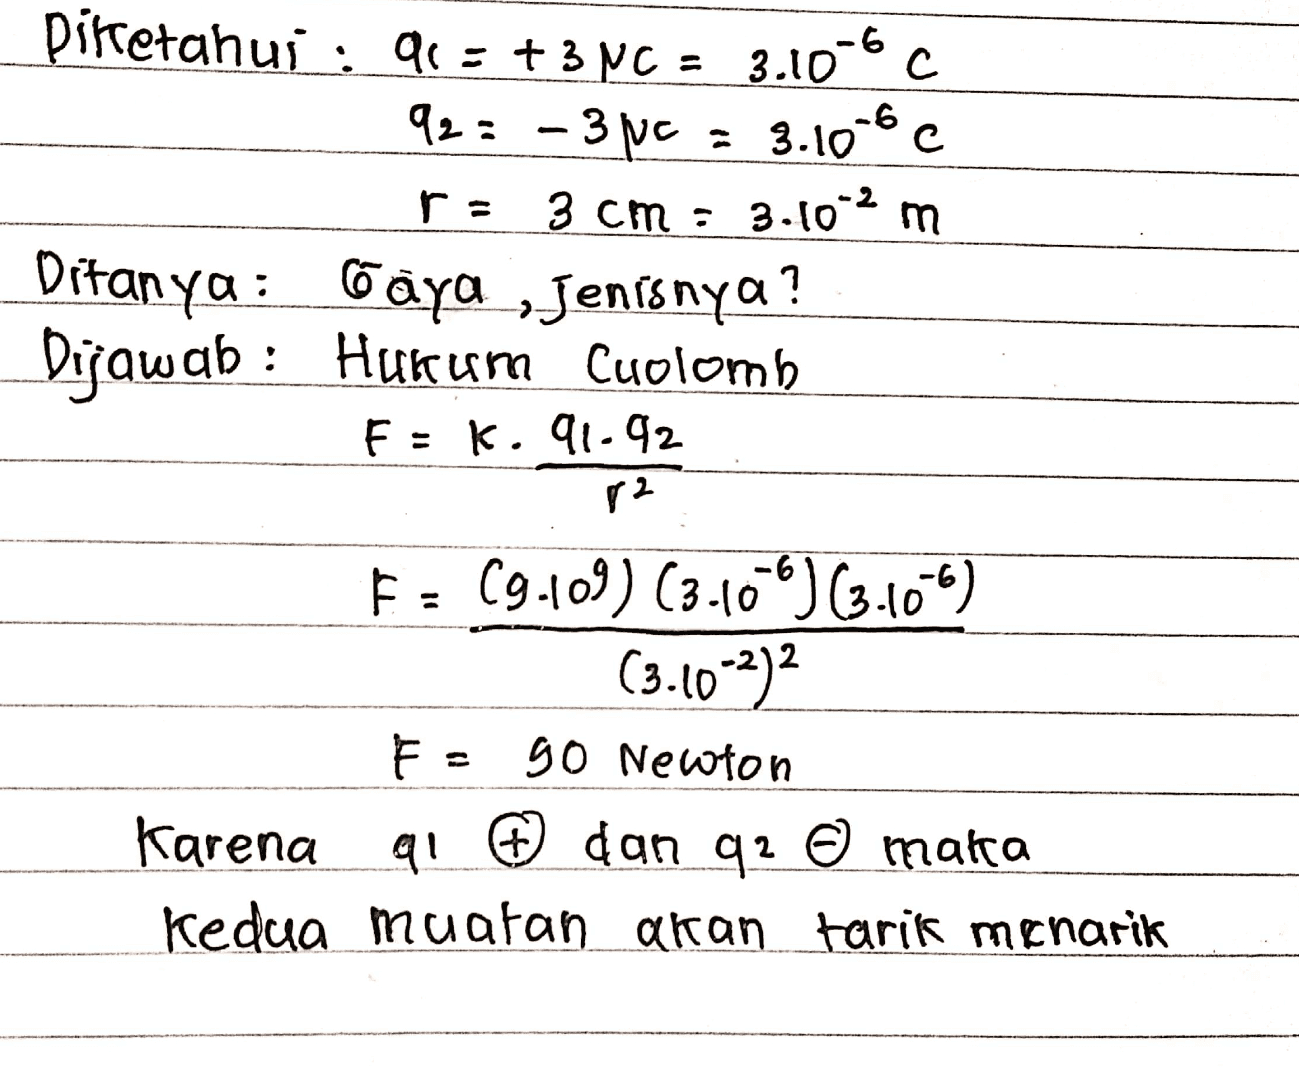 Diketahui : q1 = + 3 μC = 3.10⁻⁶ C
q2 = - 3 μC = 3.10⁻⁶ C
r = 3 cm = 3.10⁻² m
Ditanya : Gaya , Jenisnya ?
Dijawab : Hukum Cuolomb
F = K . q1.q2
r²
F = (9.10⁹) (3.10⁻⁶) (3.10⁻⁶)
(3.10⁻²)²
F = 90 Newton
Karena q1 ⊕ dan q2 ⊖ maka
Kedua muatan akan tarik menarik